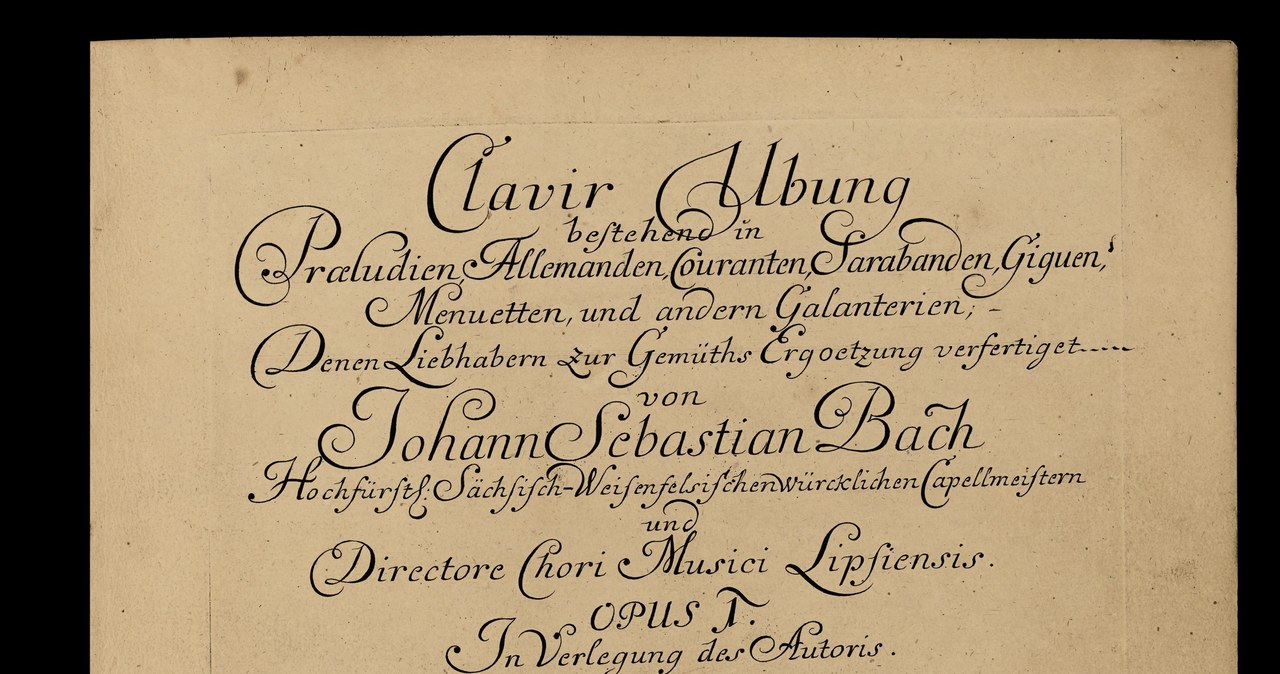 Clavir Ubung
bestehend in
Præludien, Allemanden, Couranten, Sarabanden, Giguen,
Menuetten, und andern Galanterien;
Denen Liebhabern zur Gemüths Ergoetzung verfertiget
von
Johann Sebastian Bach
Hochfürstl: Sächsisch-Weisenfelsischen würcklichen Capellmeistern
und
Directore Chori Musici Lipsiensis.
OPUS 1.
In Verlegung des Autoris.